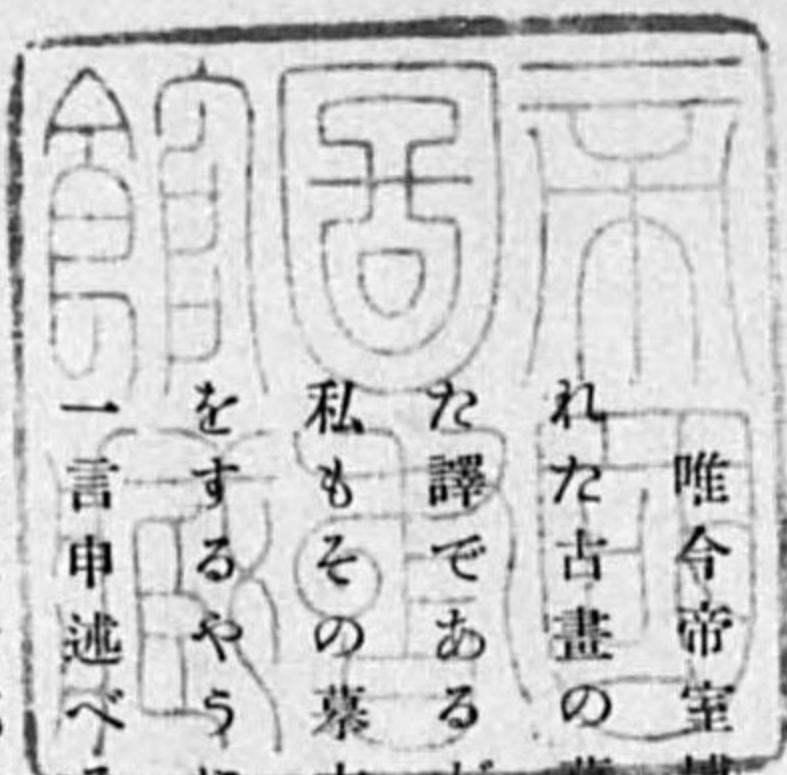 帝國
圖書
館藏
唯今帝室
れた古畫の
た譯である
私もその摹
をするやう
一言申述べ